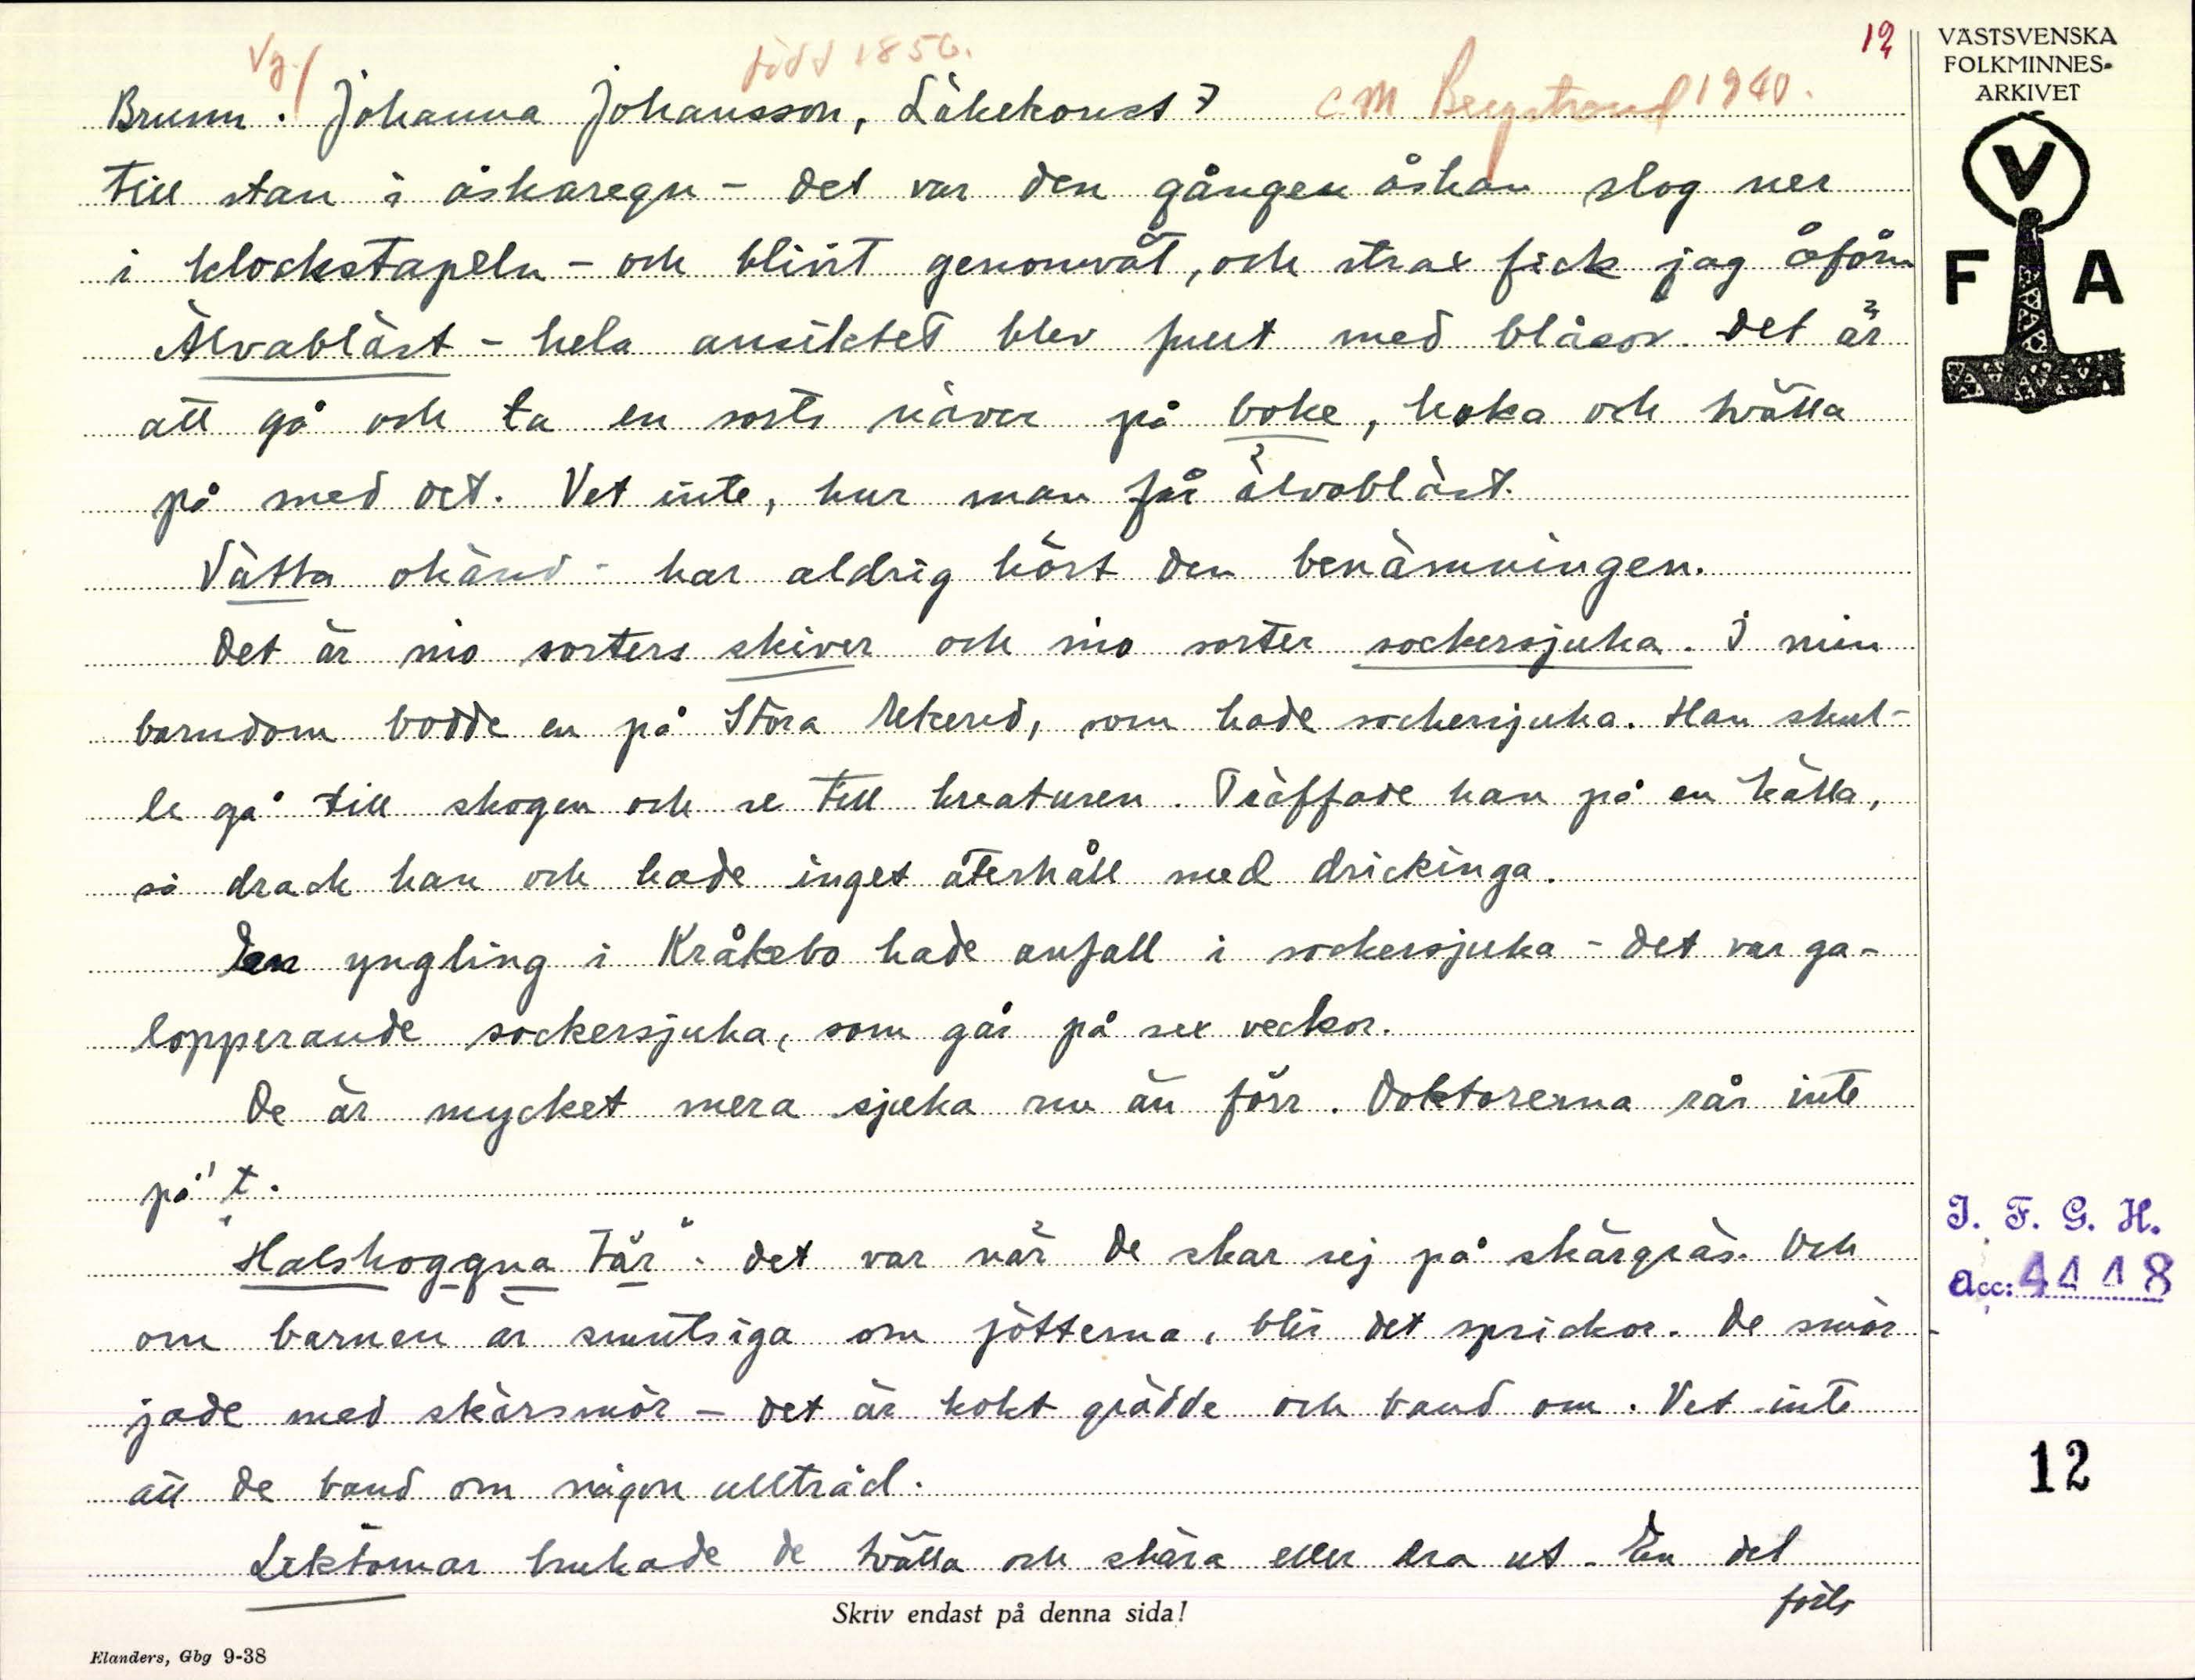 12
Vg./ född 1856.
Brunn. Johanna Johansson, Läkekonst 7 C M Bergstrand 1940.
till stan i åskaregn - det var den gången åskan slog ner
i klockstapeln - och blivit genomvåt, och strax fick jag åförn
Älvabläst - hela ansiktet blev fullt med blåsor. Det är
att gå och ta en sorts näver på boke, koka och tvätta
på med det. Vet inte, hur man får älvabläst.
Vätta okänd - har aldrig hört den benämningen.
Det är nio sorters skiver och nio sorter sockersjuka. I min
barndom bodde en på Stora Ekered, som hade sockersjuka. Han skul-
le gå till skogen och se till kreaturen. Träffade han på en källa,
så drack han och hade inget återhåll med drickinga.
En yngling i Kråkebo hade anfall i sockersjuka - det var ga-
lopperande sockersjuka, som går på sex veckor.
De är mycket mera sjuka nu än förr. Doktorerna rår inte
på't.
"Halshoggna tår": det var när de skar sej på skärgräs. Och
om barnen är smutsiga om fötterna, blir det sprickor. De smör-
jade med skärsmör - det är kokt grädde och band om. Vet inte
att de band om någon ulltråd.
Liktornar brukade de tvätta och skära eller dra ut. En del
forts
Skriv endast på denna sida!
Elanders, Gbg 9-38
VÄSTSVENSKA
FOLKMINNES-
ARKIVET
V
F A
I. F. G. H.
Acc: 4418
12